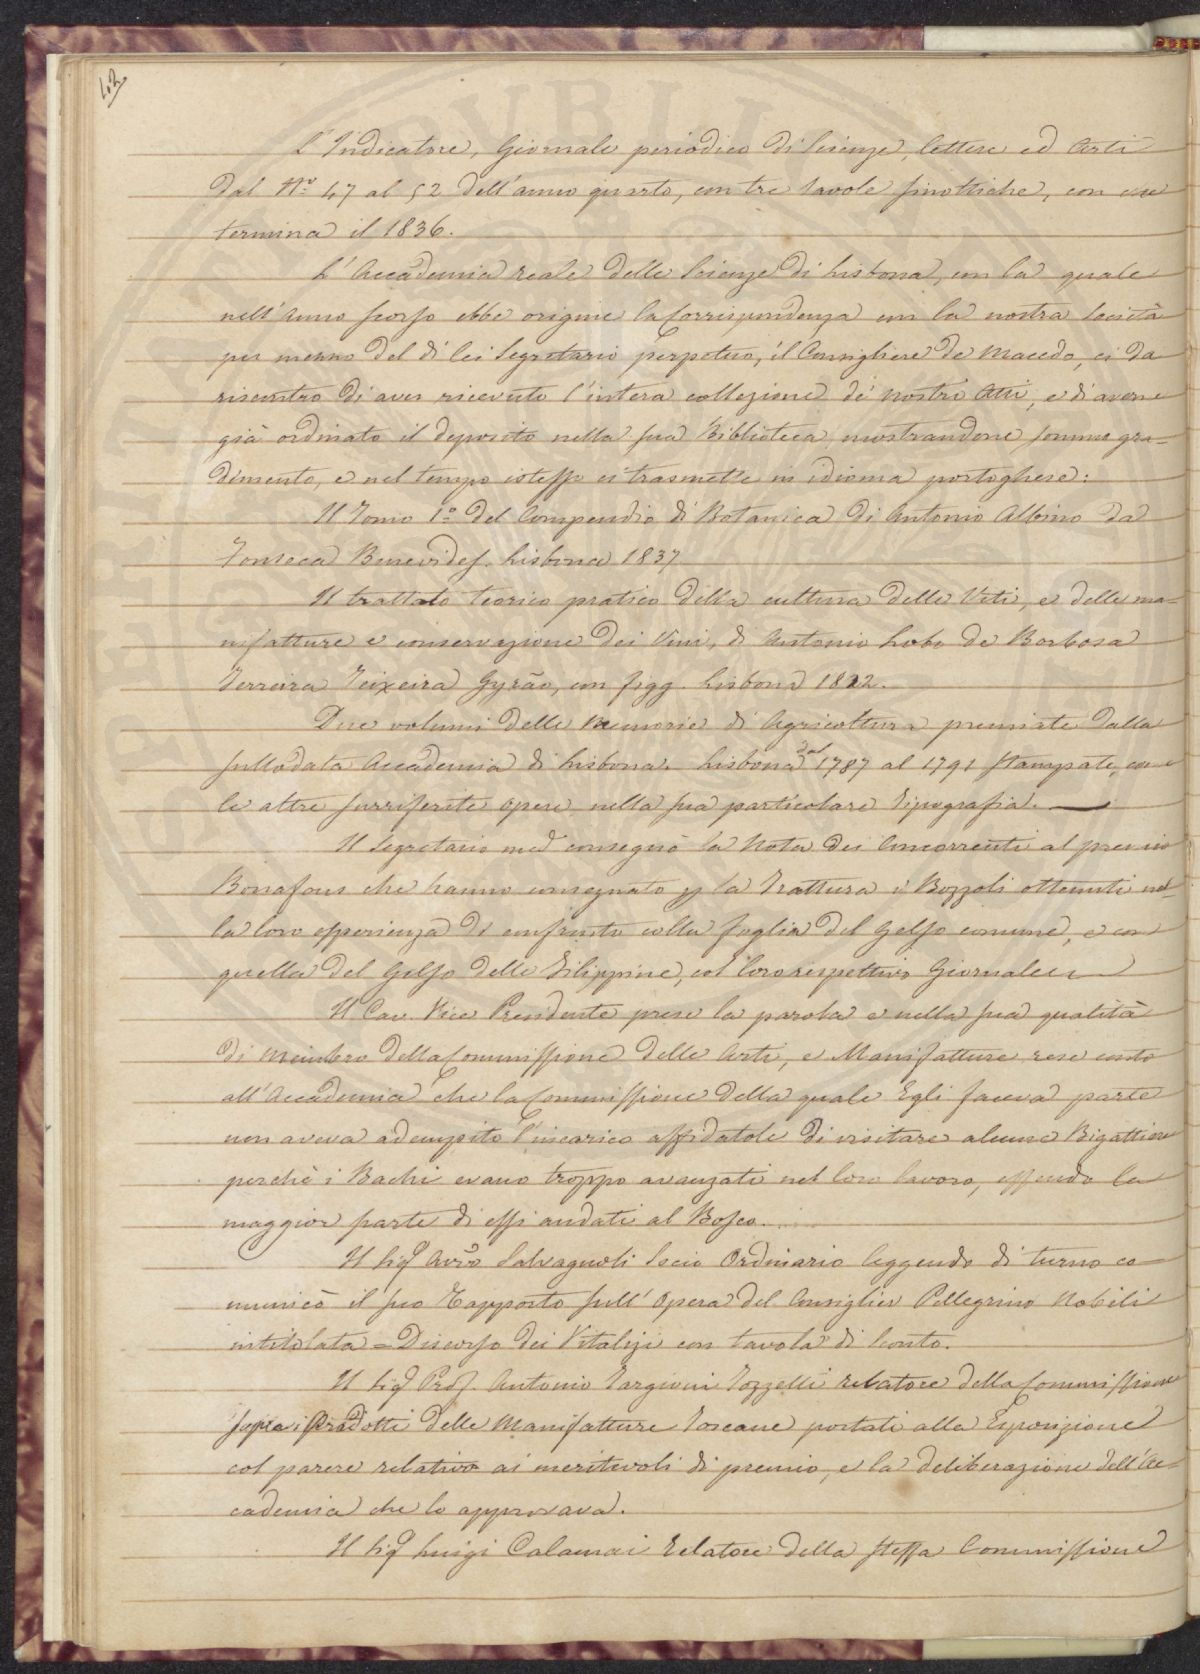 42
L'Indicatore, Giornale periodico di Scienze, lettere ed Arti
dal N.o 47 al 52 dell'anno quarto, con tre tavole sinottiche, con cui
termina il 1836.
L'Accademia reale delle Scienze di Lisbona, con la quale
nell'Anno scorso ebbe origine la Corrispondenza con la nostra Società
per mezzo del di lei Segretario perpetuo, il Consigliere de Macedo, ci da
riscontro di aver ricevuto l'intera collezione de' nostri Atti, e di averne
già ordinato il deposito nella sua Biblioteca, mostrandone sommo gra-
dimento, e nel tempo istesso ci trasmette in idioma portoghese:
Il Tomo 1.o del Compendio di Botanica di Antonio Albino da
Fonseca Benevides. Lisbona 1837
Il trattato teorico pratico della cultura delle Viti, e delle ma-
nifatture e conservazione dei Vini, di Antonio Lobo de Barbosa
Ferreira Teixeira Gyrão, con figg. Lisbona 1822.
Due volumi delle Memorie di Agricoltura premiate dalla
sullodata Accademia di Lisbona. Lisbona dal 1787 al 1791 stampate, come
le altre surriferite opere nella sua particolare Tipografia.
Il Segretario med. consegnò la Nota dei Concorrenti al premio
Bonafous che hanno consegnato p la Trattura i Bozzoli ottenuti nel-
la loro esperienza di confronto colla foglia del Gelso comune, e con
quella del Gelso delle Filippine, col loro respettivo Giornale
Il Cav. Vice Presidente prese la parola e nella sua qualità
di Membro della Commissione delle Arti, e Manifatture rese conto
all'Accademia che la Commissione della quale Egli faceva parte
non aveva adempito l'incarico affidatole di visitare alcune Bigattiere
perchè i Bachi erano troppo avanzati nel loro lavoro, essendo la
maggior parte di essi andati al Bosco.
Il Sig. Avv.o Salvagnoli Socio Ordinario leggendo di turno co-
municò il suo Rapporto sull'Opera del Consiglier Pellegrino Nobili
intitolata = Discorso dei Vitalizi con tavola di Sconto.
Il Sig. Prof. Antonio Targioni Tozzetti relatore della Commissione
sopra i Prodotti delle Manifatture Toscane portati alla Esposizione
col parere relativo ai meritevoli di premio, e la deliberazione dell'Ac-
cademia che lo approvava.
Il Sig. Luigi Calamai Relatore della stessa Commissione